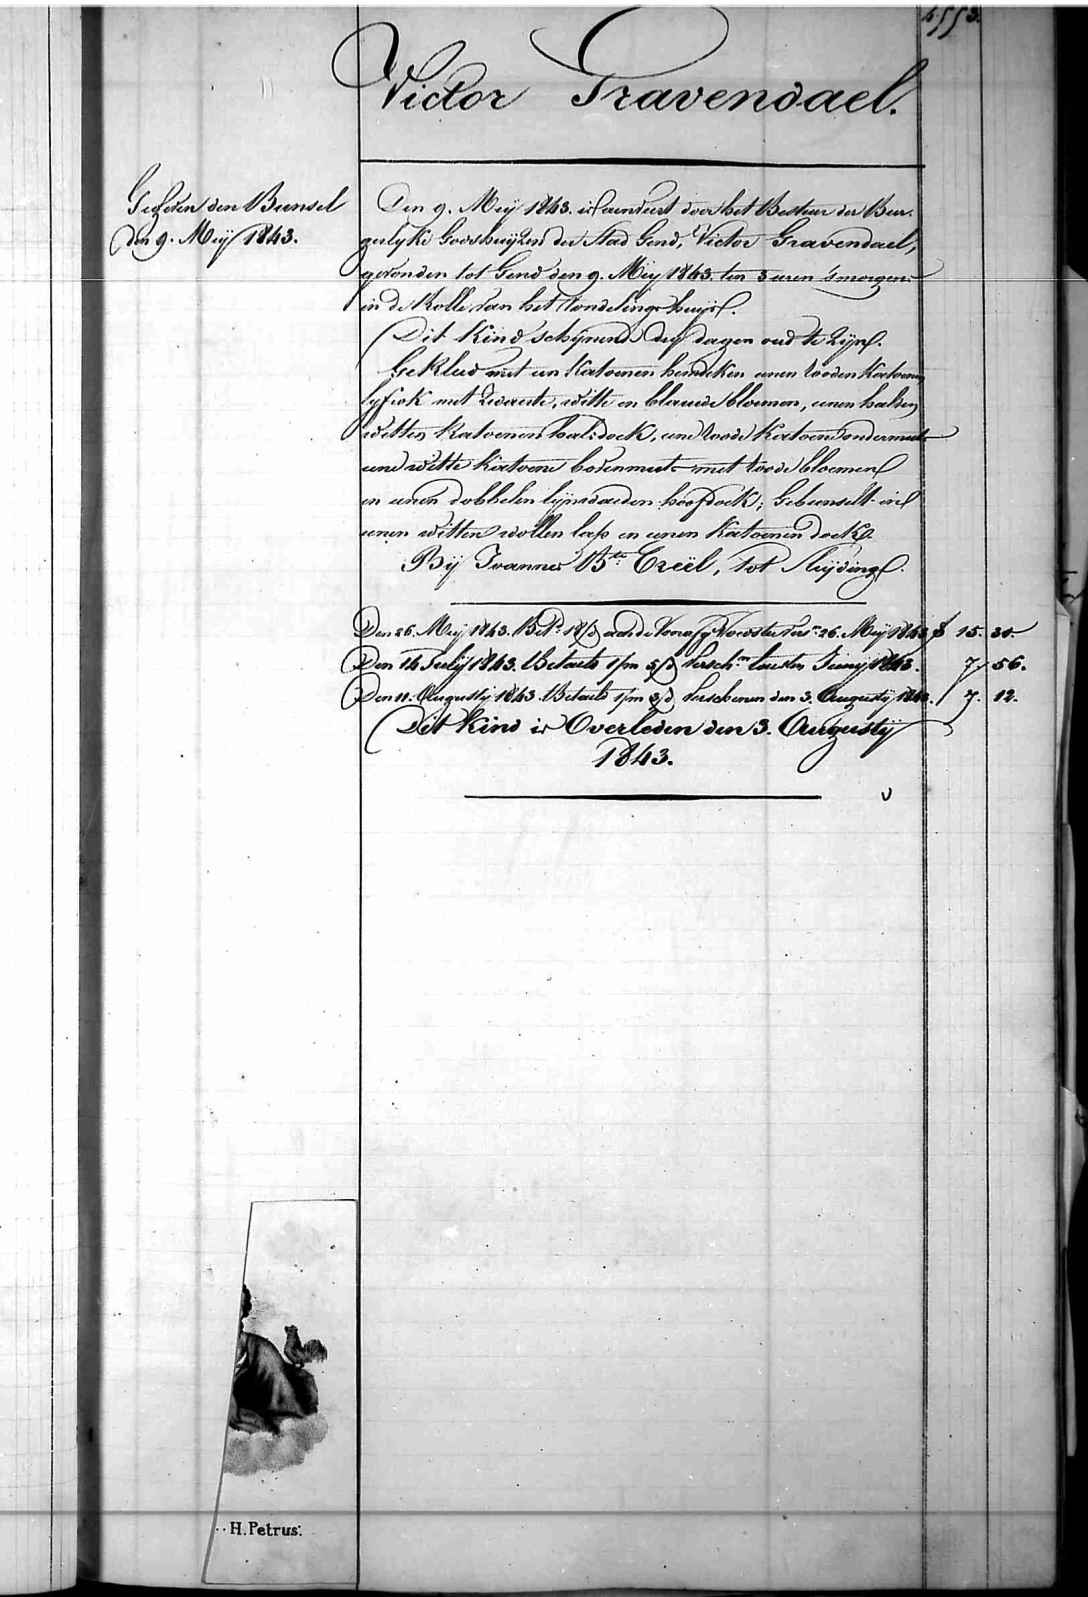 4553.
Victor Gravendael.
Gegeven den Bunsel
den 9. Meij 1843.
Den 9. Meij 1843. is aenveert door het Bestuer der Bur-
gerlyke Godshuijzen der Stad Gend, Victor Gravendael,
gevonden tot Gend den 9. Meij 1843. ten 3 uren 'smorgens
in de Rolle van het Vondelinge huijs.
Dit Kind schynend dry dagen oud te zijn.
Gekleed met een Katoenen hemdeken eenen rooden Katoenen
lyfrok met zwarte, witte en blauwe bloemen, eenen halven
witten Katoenen halsdoek, eene roode Katoene ondermuts
eene witte Katoene bovenmuts met roode bloemen
en eenen dobbelen lynwaeden hoofdoek; Gebunselt in
eenen witten wollen lap en eenen Katoenen doek.
Bij Joannes Bte Creël, tot Sluijdinge.
Den 26. Meij 1843. Bet. 18/d aen de Voorsz. Voedster 26. Meij 1843 f 15. 30.
Den 14 Julij 1843. Betaelt 1/m 5/d Versch.n lausten Junij 1843. 7. 56.
Den 11. Augusty 1843. Betaelt 1/m 3/d Verschenen den 3. Augusty 1843. 7. 12.
Dit Kind is Overleden den 3. Augustij
1843.
H. Petrus.